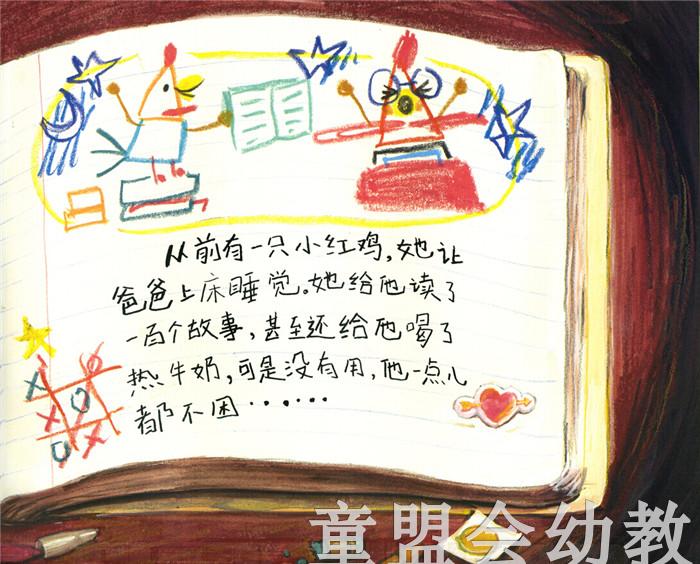 从前有一只小红鸡,她让
爸爸上床睡觉。她给他读了
一百个故事,甚至还给他喝了
热牛奶,可是没有用,他一点儿
都不困······
童盟会幼教